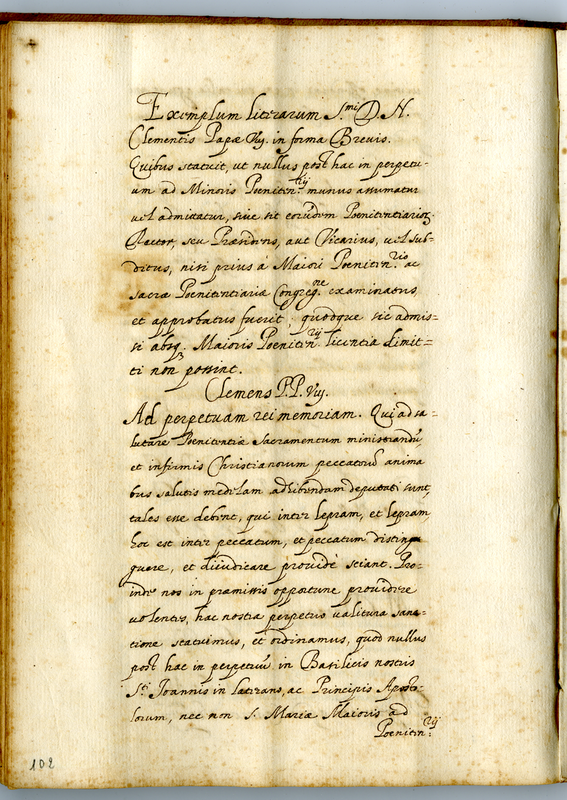 Exemplum literarum S.mi D. N.
Clementis Papæ Viij. in forma Brevis.
Quibus statuit, ut nullus post hac in perpetu-
um ad Minoris Poeniten.rij munus assumatur
vel admittatur, sive sit eorundem Poenitentiarior.
Rector, seu Præsidens, aut Vicarius, vel sub-
ditus, nisi prius à Maiori Poeniten.rio ac
sacræ Poenitentiariæ Congreg.ne examinatus,
et approbatus fuerit, quodque sic admis-
si absq. Maioris Poeniten.rij licentia dimit-
ti non possint.
Clemens P.P. Viij.
Ad perpetuam rei memoriam. Qui ad sa-
lutare Poenitentiæ Sacramentum ministrandũ
et infirmis Christianorum peccatorũ anima
bus salutis medelam adhibendam deputati sunt,
tales esse debent, qui inter lepram, et lepram,
hoc est inter peccatum, et peccatum distin
guere, et diiudicare providè sciant. Pro-
inde nos in præmissis opportune providere
volentes, hac nostra perpetuo valitura sanc-
tione statuimus, et ordinamus, quod nullus
post hac in perpetuũ in Basilicis nostris
S.ti Ioannis in laterano, ac Principis Aposto-
lorum, nec non S. Mariæ Maioris ad
Poeniten.rij
102